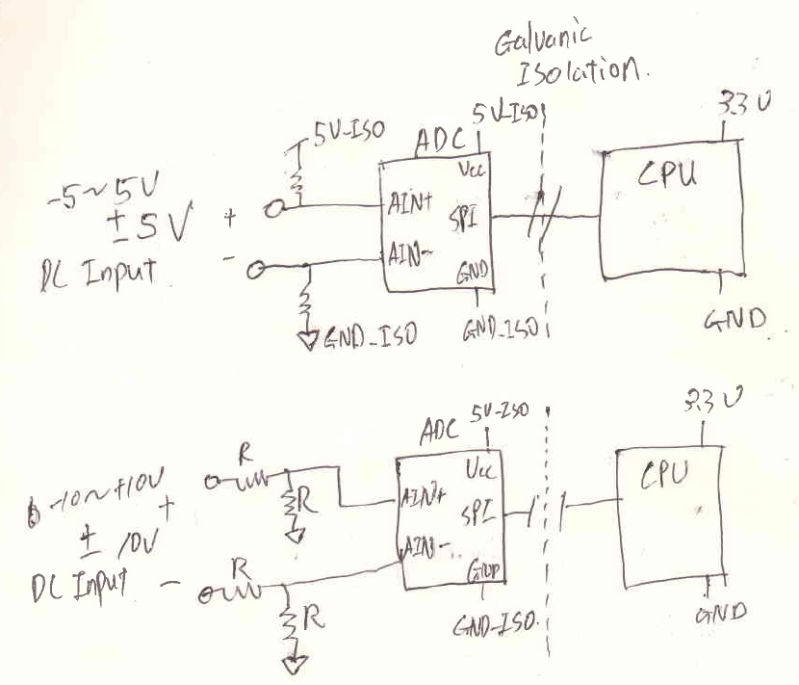 Galvanic
Isolation.
5V_ISO
ADC
5V_ISO
3.3V
-5~5V
± 5V
DC Input
+
-
AIN+
AIN-
Vcc
SPI
GND
CPU
GND_ISO
GND_ISO
GND
ADC
5V-ISO
3.3V
-10~+10V
± 10V
DC Input
+
-
R
R
R
R
AIN+
AIN-
Vcc
SPI
GND
CPU
GND_ISO.
GND